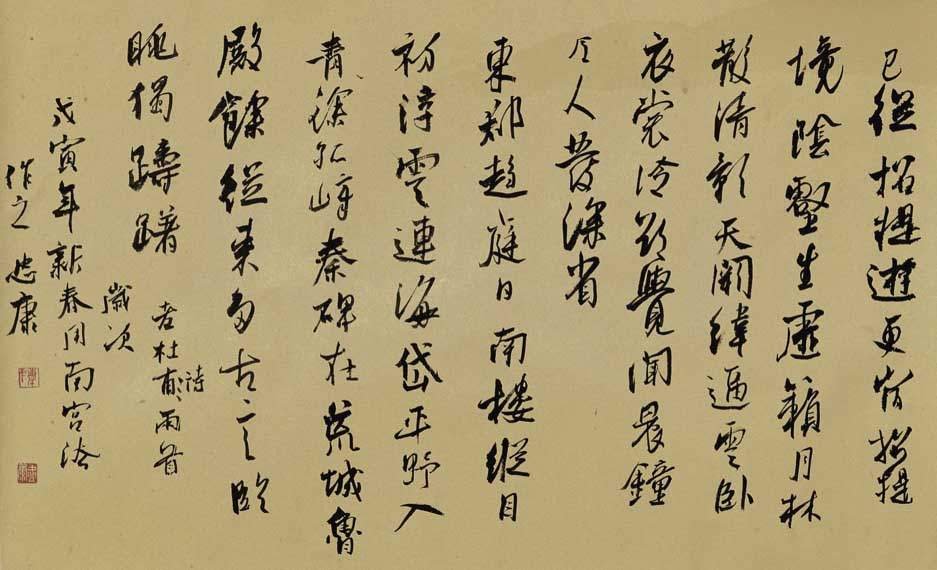 已從招提遊更宿招提
境陰壑生虛籟月林
散清影天闕緯逼雲卧
衣裳冷欲覺聞晨鐘
令人發深省
東郡趨庭日南樓縱目
初浮雲連海岱平野入
青徐孤嶂秦碑在荒城魯
殿餘從來多古意臨
眺獨躊躇
杜甫詩兩首
歲次
戊寅年新春用南宮法
作之 康